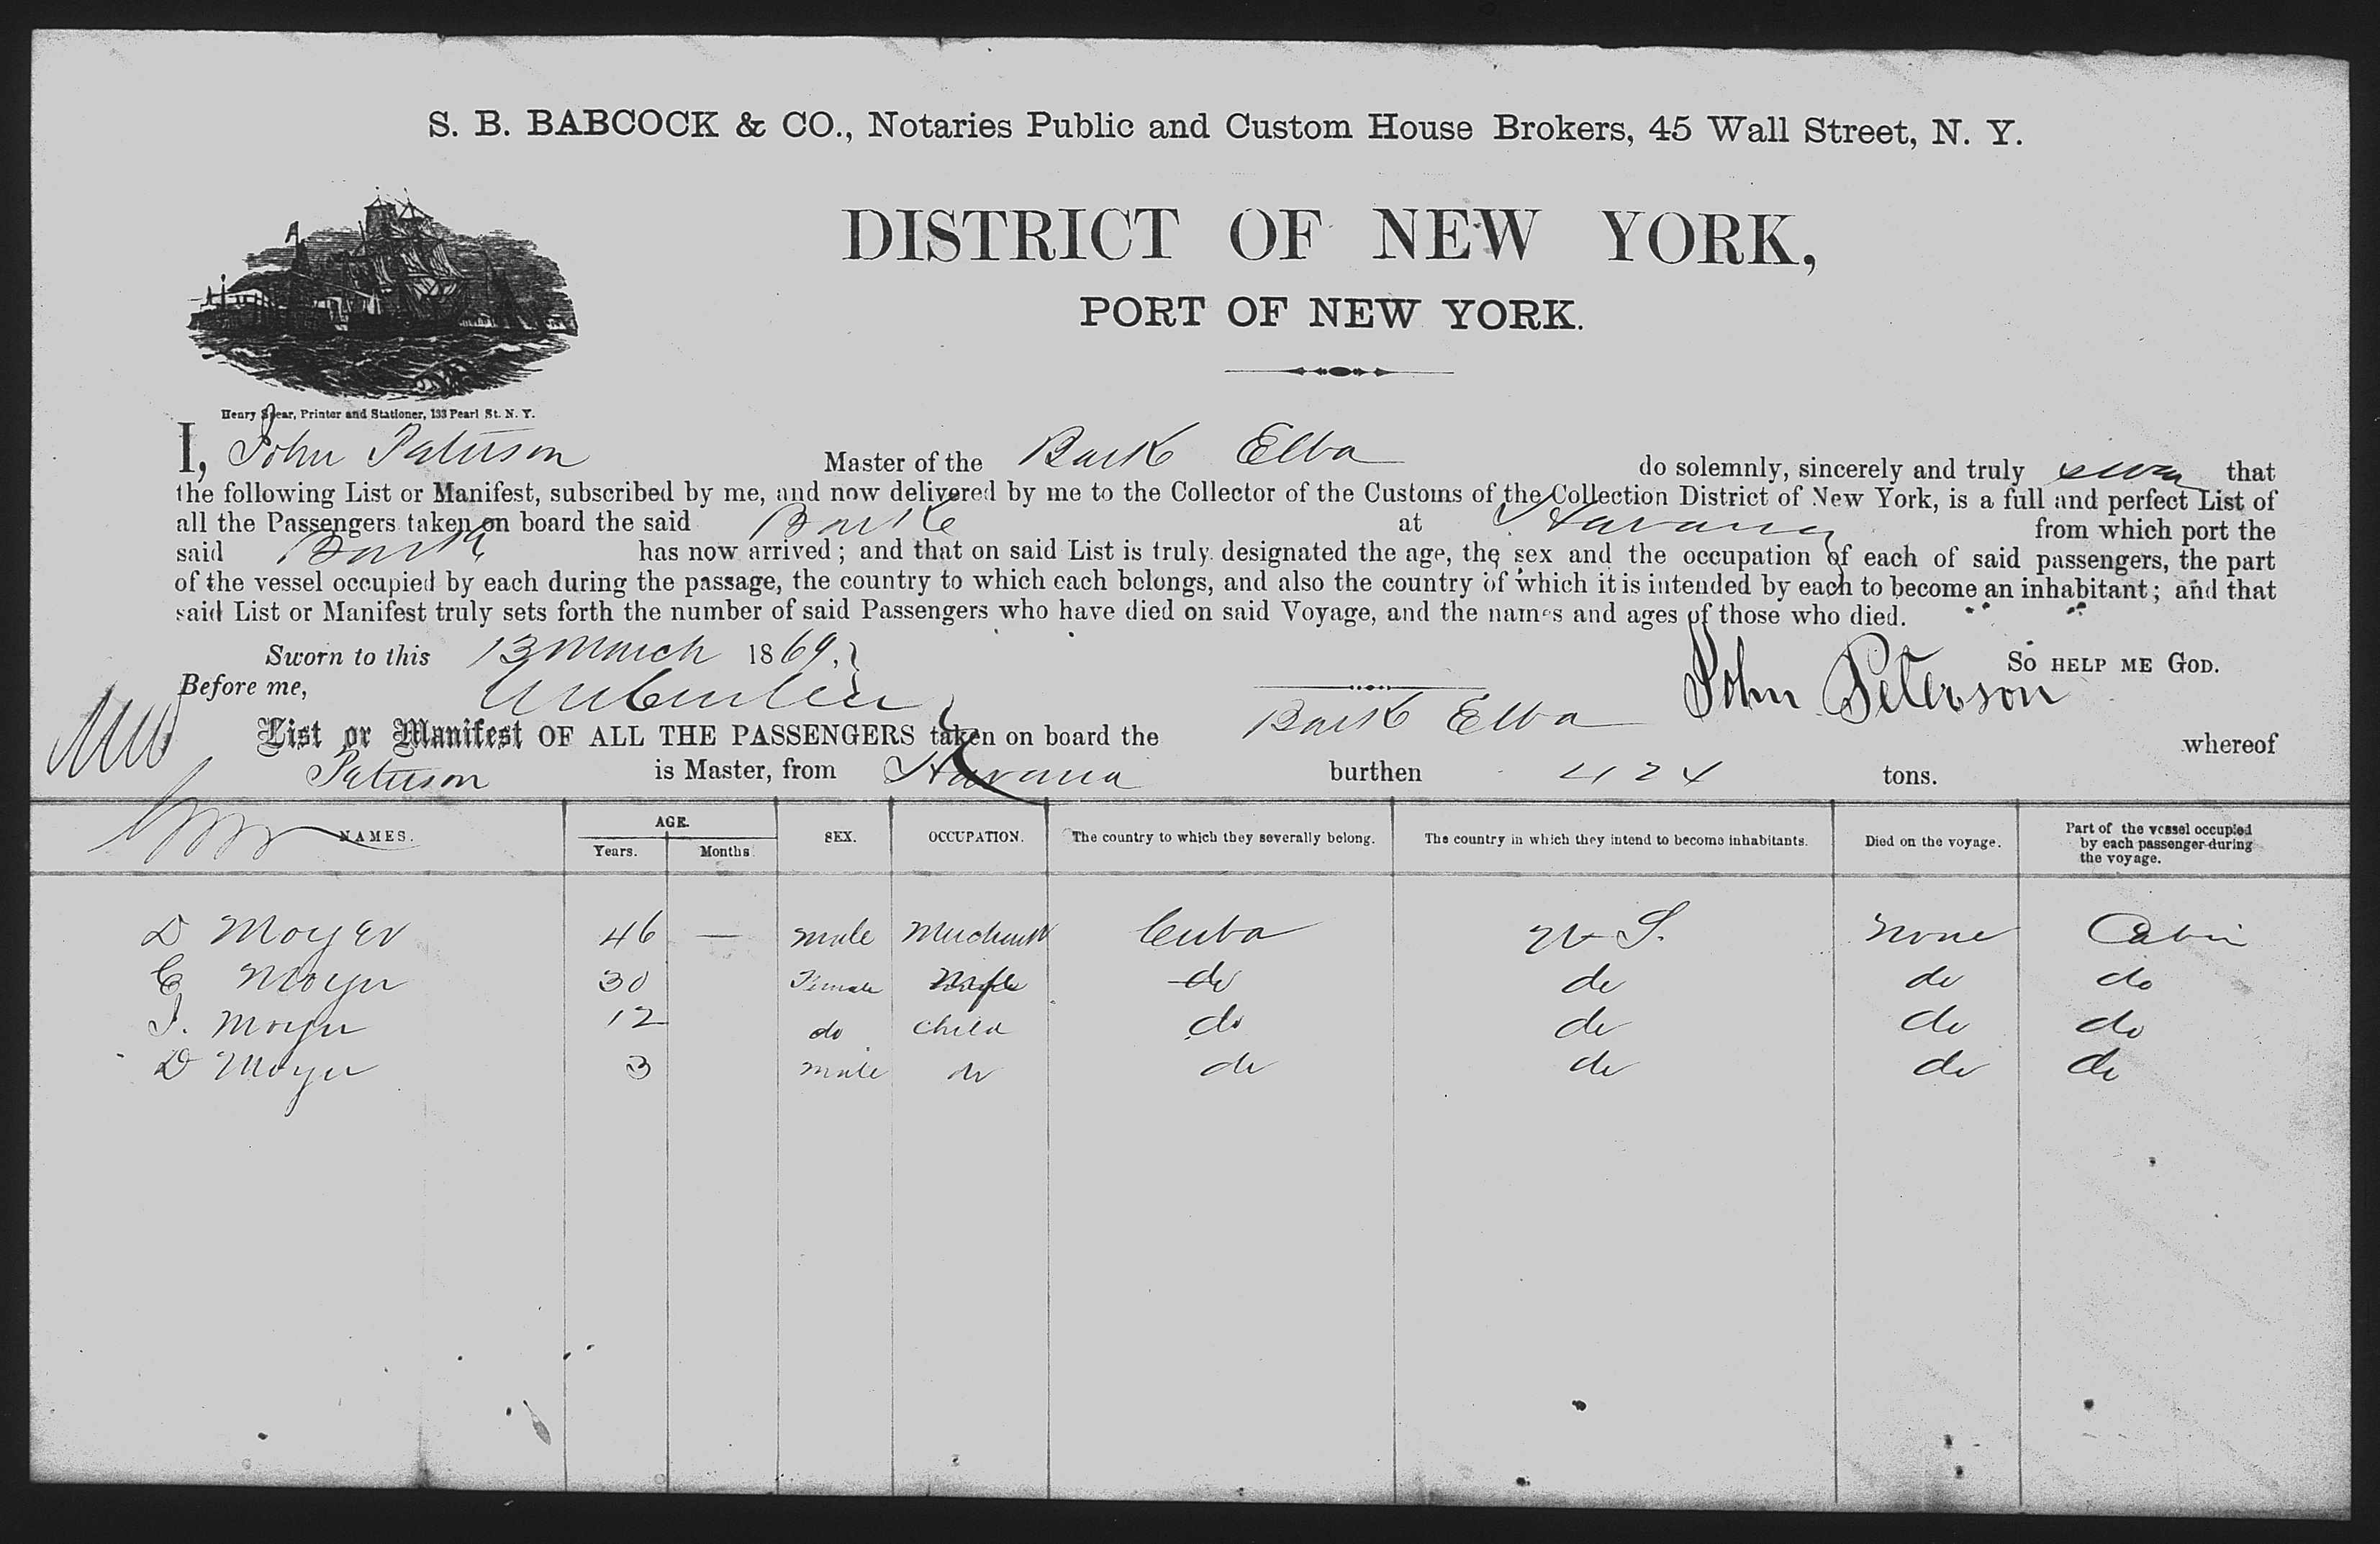 S. B. BABCOCK & CO., Notaries Public and Custom House Brokers, 45 Wall Street, N. Y.
DISTRICT OF NEW YORK,
PORT OF NEW YORK.
Henry Spear, Printer and Stationer, 133 Pearl St. N. Y.
I, John Paterson Master of the Bark Elba do solemnly, sincerely and truly swear that
the following List or Manifest, subscribed by me, and now delivered by me to the Collector of the Customs of the Collection District of New York, is a full and perfect List of
all the Passengers taken on board the said Bark at Havana from which port the
said Bark has now arrived; and that on said List is truly designated the age, the sex and the occupation of each of said passengers, the part
of the vessel occupied by each during the passage, the country to which each belongs, and also the country of which it is intended by each to become an inhabitant; and that
said List or Manifest truly sets forth the number of said Passengers who have died on said Voyage, and the names and ages of those who died.
Sworn to this 13 March 1869. So help me God.
Before me, John Peterson
List or Manifest OF ALL THE PASSENGERS taken on board the Bark Elba whereof
Paterson is Master, from Havana burthen 424 tons.
NAMES. AGE. Years. Months SEX. OCCUPATION. The country to which they severally belong. The country in which they intend to become inhabitants. Died on the voyage. Part of the vessel occupied by each passenger during the voyage.
D Moyer 46 — male Merchant Cuba U S. None Cabin
C Moyer 30 Female Wife do do do do
J. Moyer 12 do child do do do do
D Moyer 3 male do do do do do